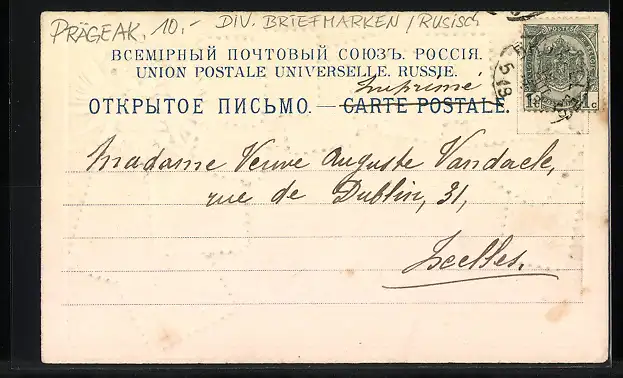 PRÄGEAK. 10.- DIV. BRIEFMARKEN / RUSISCH
ВСЕМІРНЫЙ ПОЧТОВЫЙ СОЮЗЪ. РОССІЯ.
UNION POSTALE UNIVERSELLE. RUSSIE.
Imprimé
ОТКРЫТОЕ ПИСЬМО. — CARTE POSTALE.
POSTES
1c 1c
Madame Veuve Auguste Vandaele,
rue de Dublin, 31,
Ixelles.